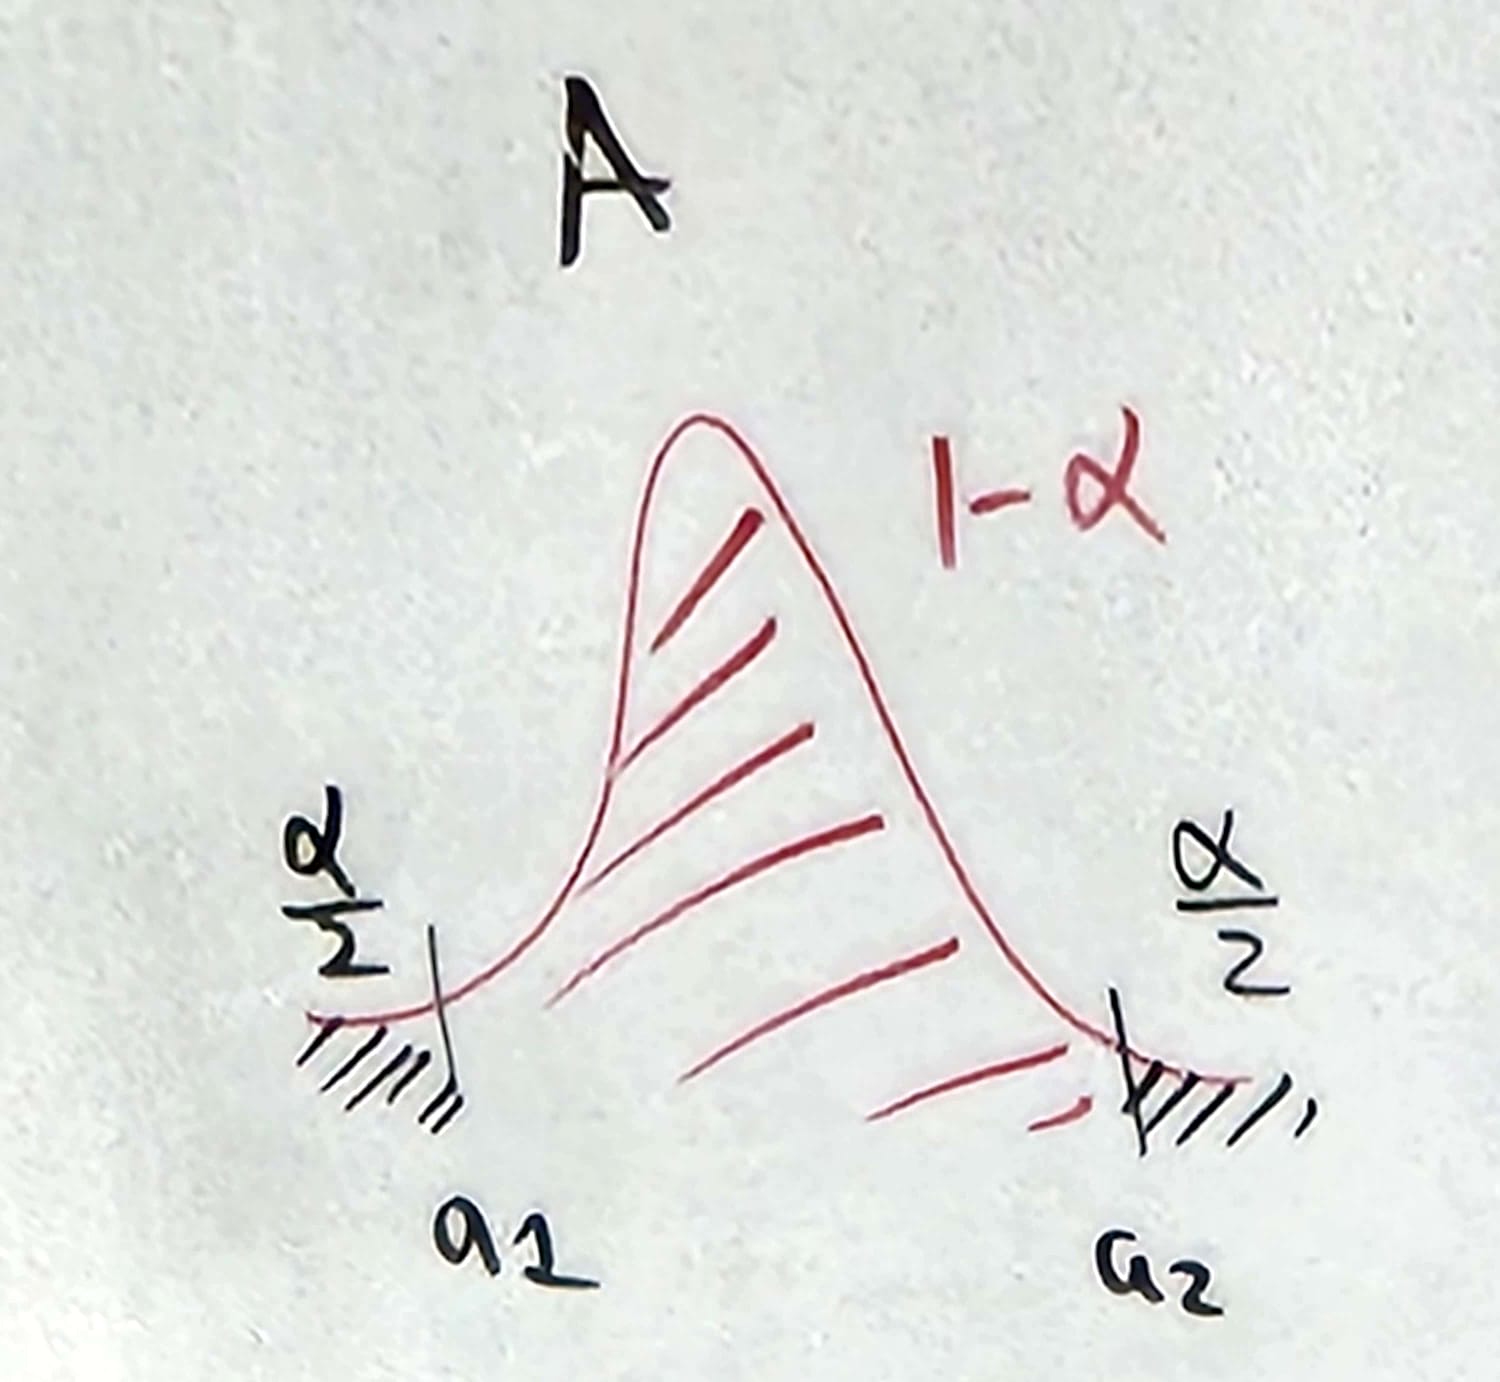 A
1-α
α/2
α/2
a1
a2